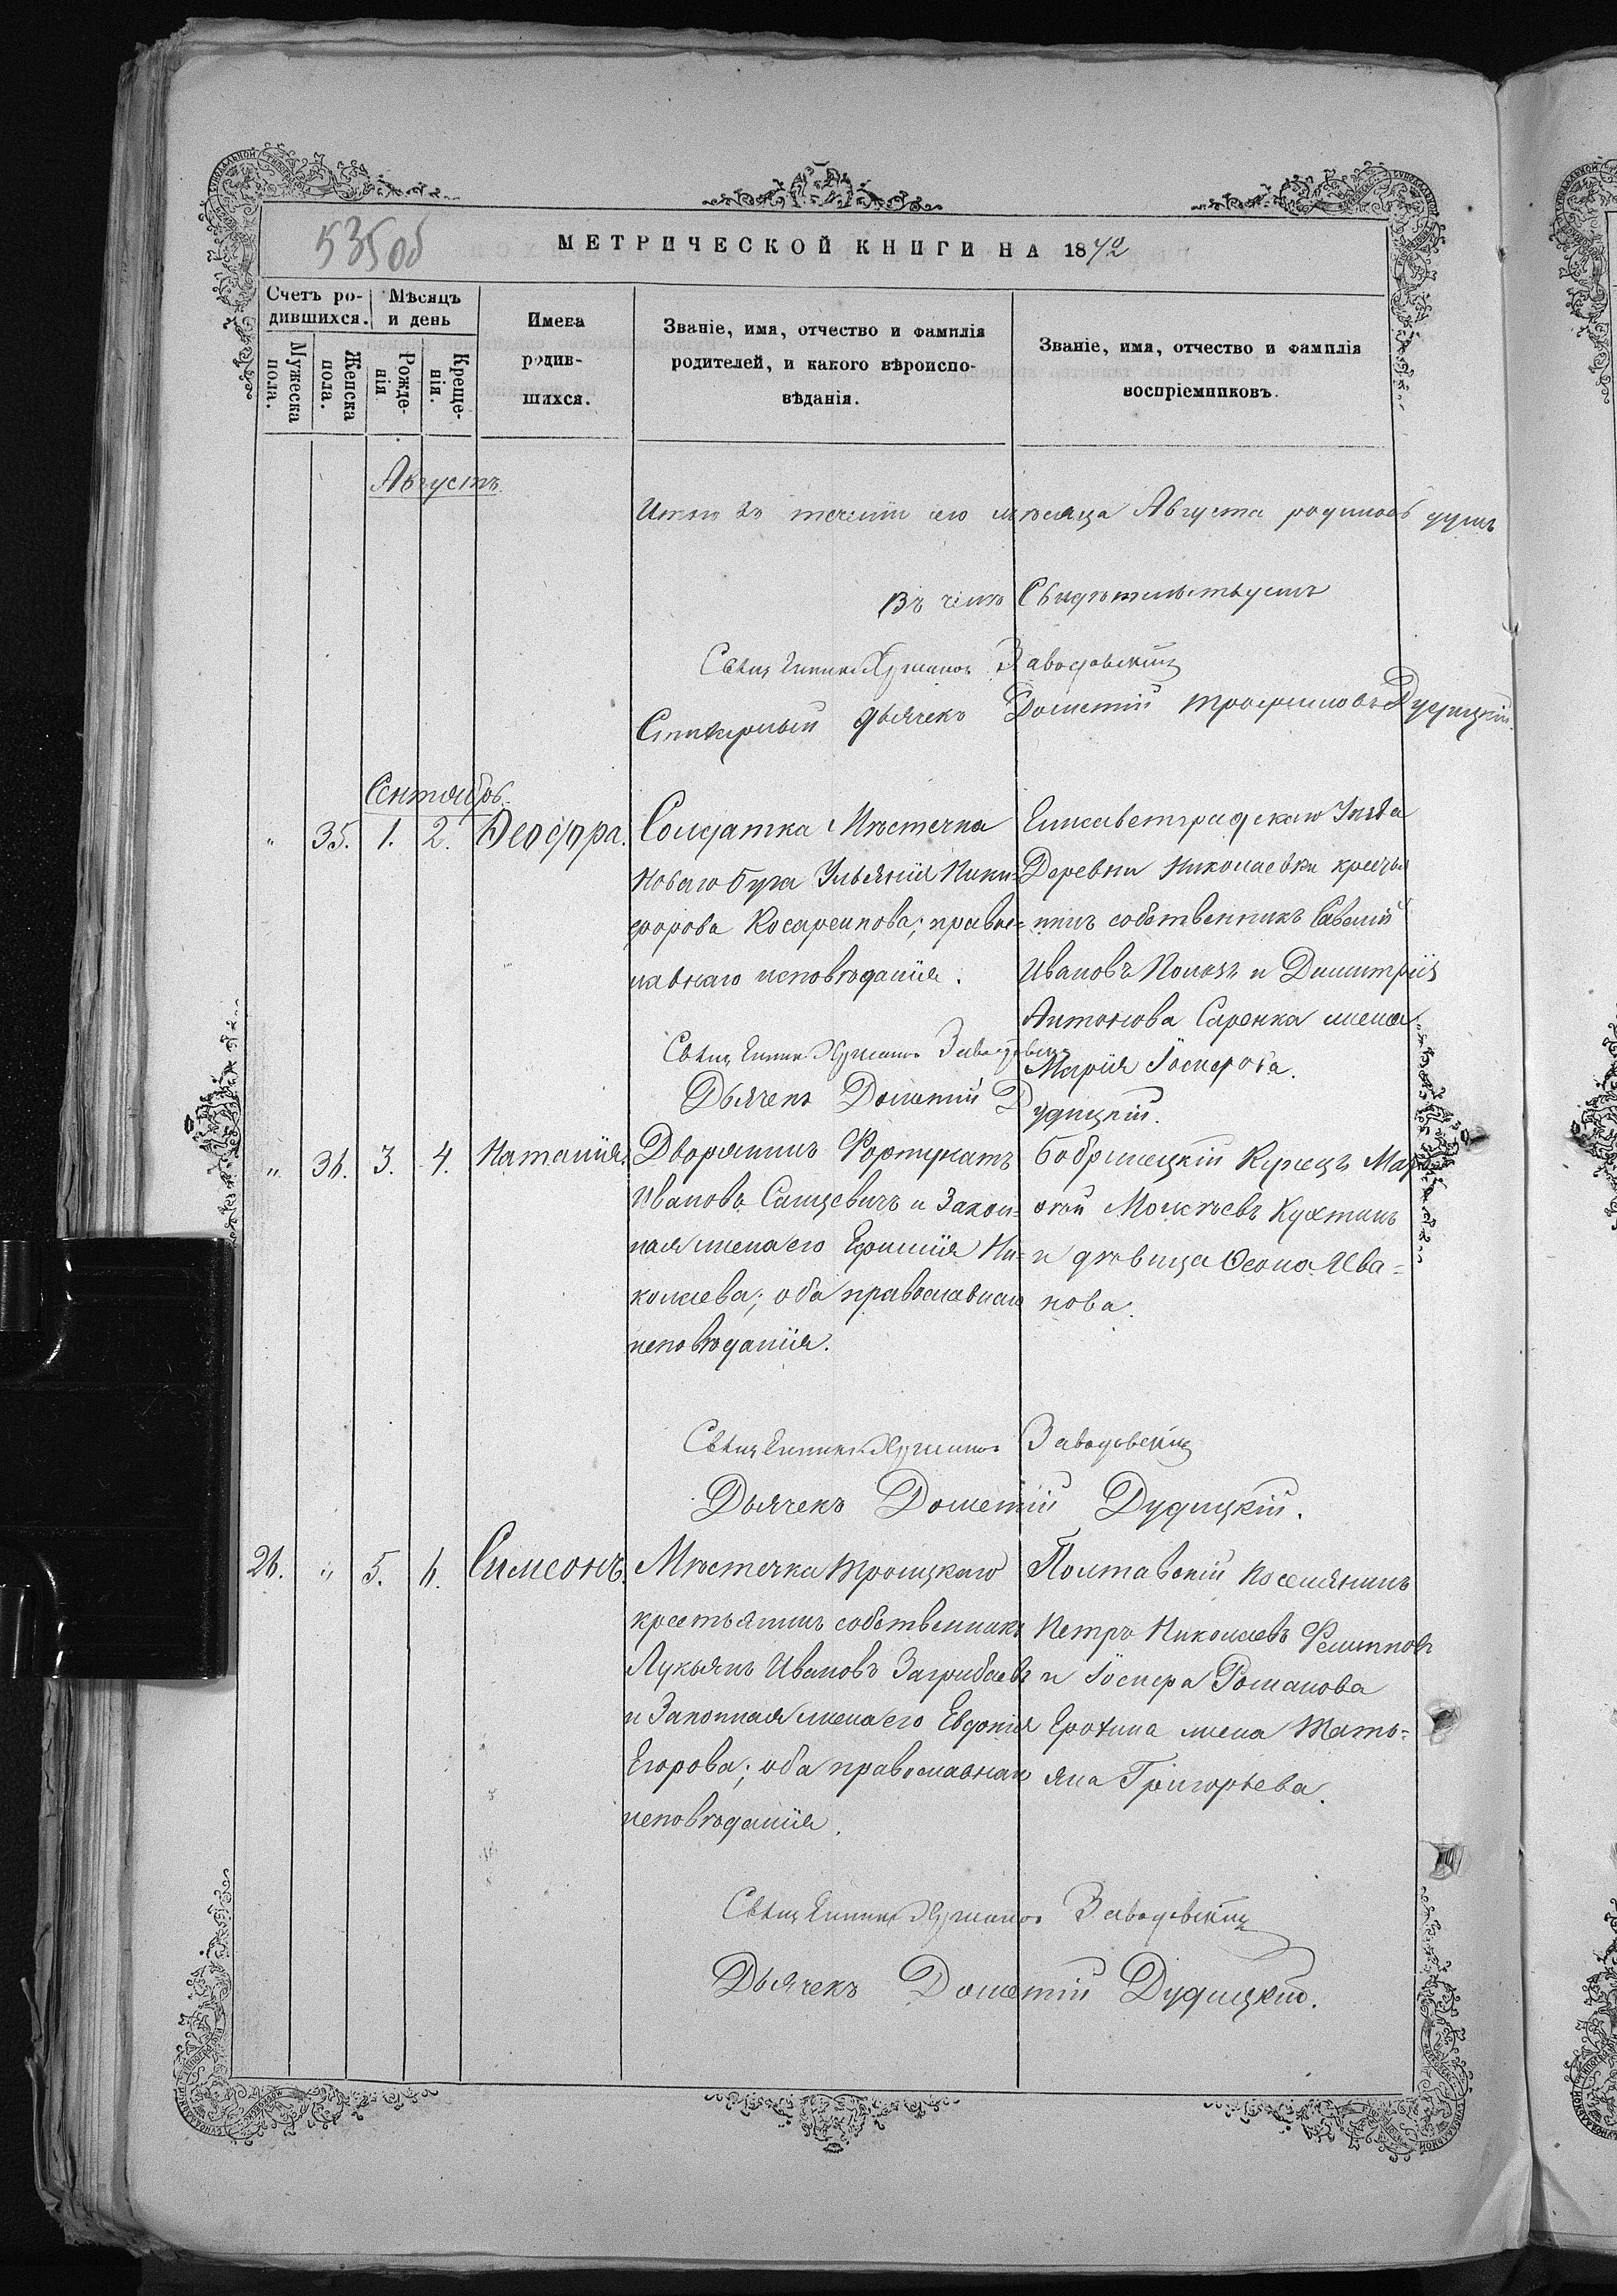 535об
МЕТРИЧЕСКОЙ КНИГИ НА 1872
Счетъ ро-
дившихся.
Мѣсяцъ
и день
Мужеска
пола.
Женска
пола.
Рожде-
нія
Креще-
нія.
Имена
родив-
шихся.
Званіе, имя, отчество и фамилія
родителей, и какого вѣроиспо-
вѣданія.
Званіе, имя, отчество и фамилія
воспріемниковъ.
Августъ.
Итого въ теченіи сего мѣсяца Августа родилось душъ
Въ чемъ Свидѣтельствуемъ
Священникъ Заводовскій
Дьячекъ Дометій Трофимовъ Дудицкій.
Сентябрь.
" 35. 1. 2. Ѳеодора.
Солдатка Мѣстечка
Новаго Буга Ульянія Ники-
форова Косаренкова; правос-
лавнаго исповѣданія.
Елисаветградскаго Уѣзда
Деревни Николаевки крестья-
нинъ собственникъ Савелій
Ивановъ и Димитрія
Антонова Саренка жена
Марія Іосифова.
Священникъ Заводовскій
Дьячекъ Дометій Дудицкій.
" 36. 3. 4. Наталія.
Дворянинъ Фортунатъ
Ивановъ Сацевичъ и Закон-
ная жена его Ефимія Ни-
колаева; оба православнаго
исповѣданія.
Бобринецкій Купецъ
Моисѣевъ Кухтинъ
и дѣвица Ѳеона Ива-
нова.
Священникъ Заводовскій
Дьячекъ Дометій Дудицкій.
26. " 5. 6. Симеонъ.
Мѣстечка Троицкаго
крестьянинъ собственникъ
Лукьянъ Ивановъ
и Законная жена его Евдокія
Егорова; оба православнаго
исповѣданія.
Полтавскій поселянинъ
Петръ Николаевъ Филиповъ
и Іосифа Романова
Ерохина жена Тать-
яна Григорьева.
Священникъ Заводовскій
Дьячекъ Дометій Дудицкій.